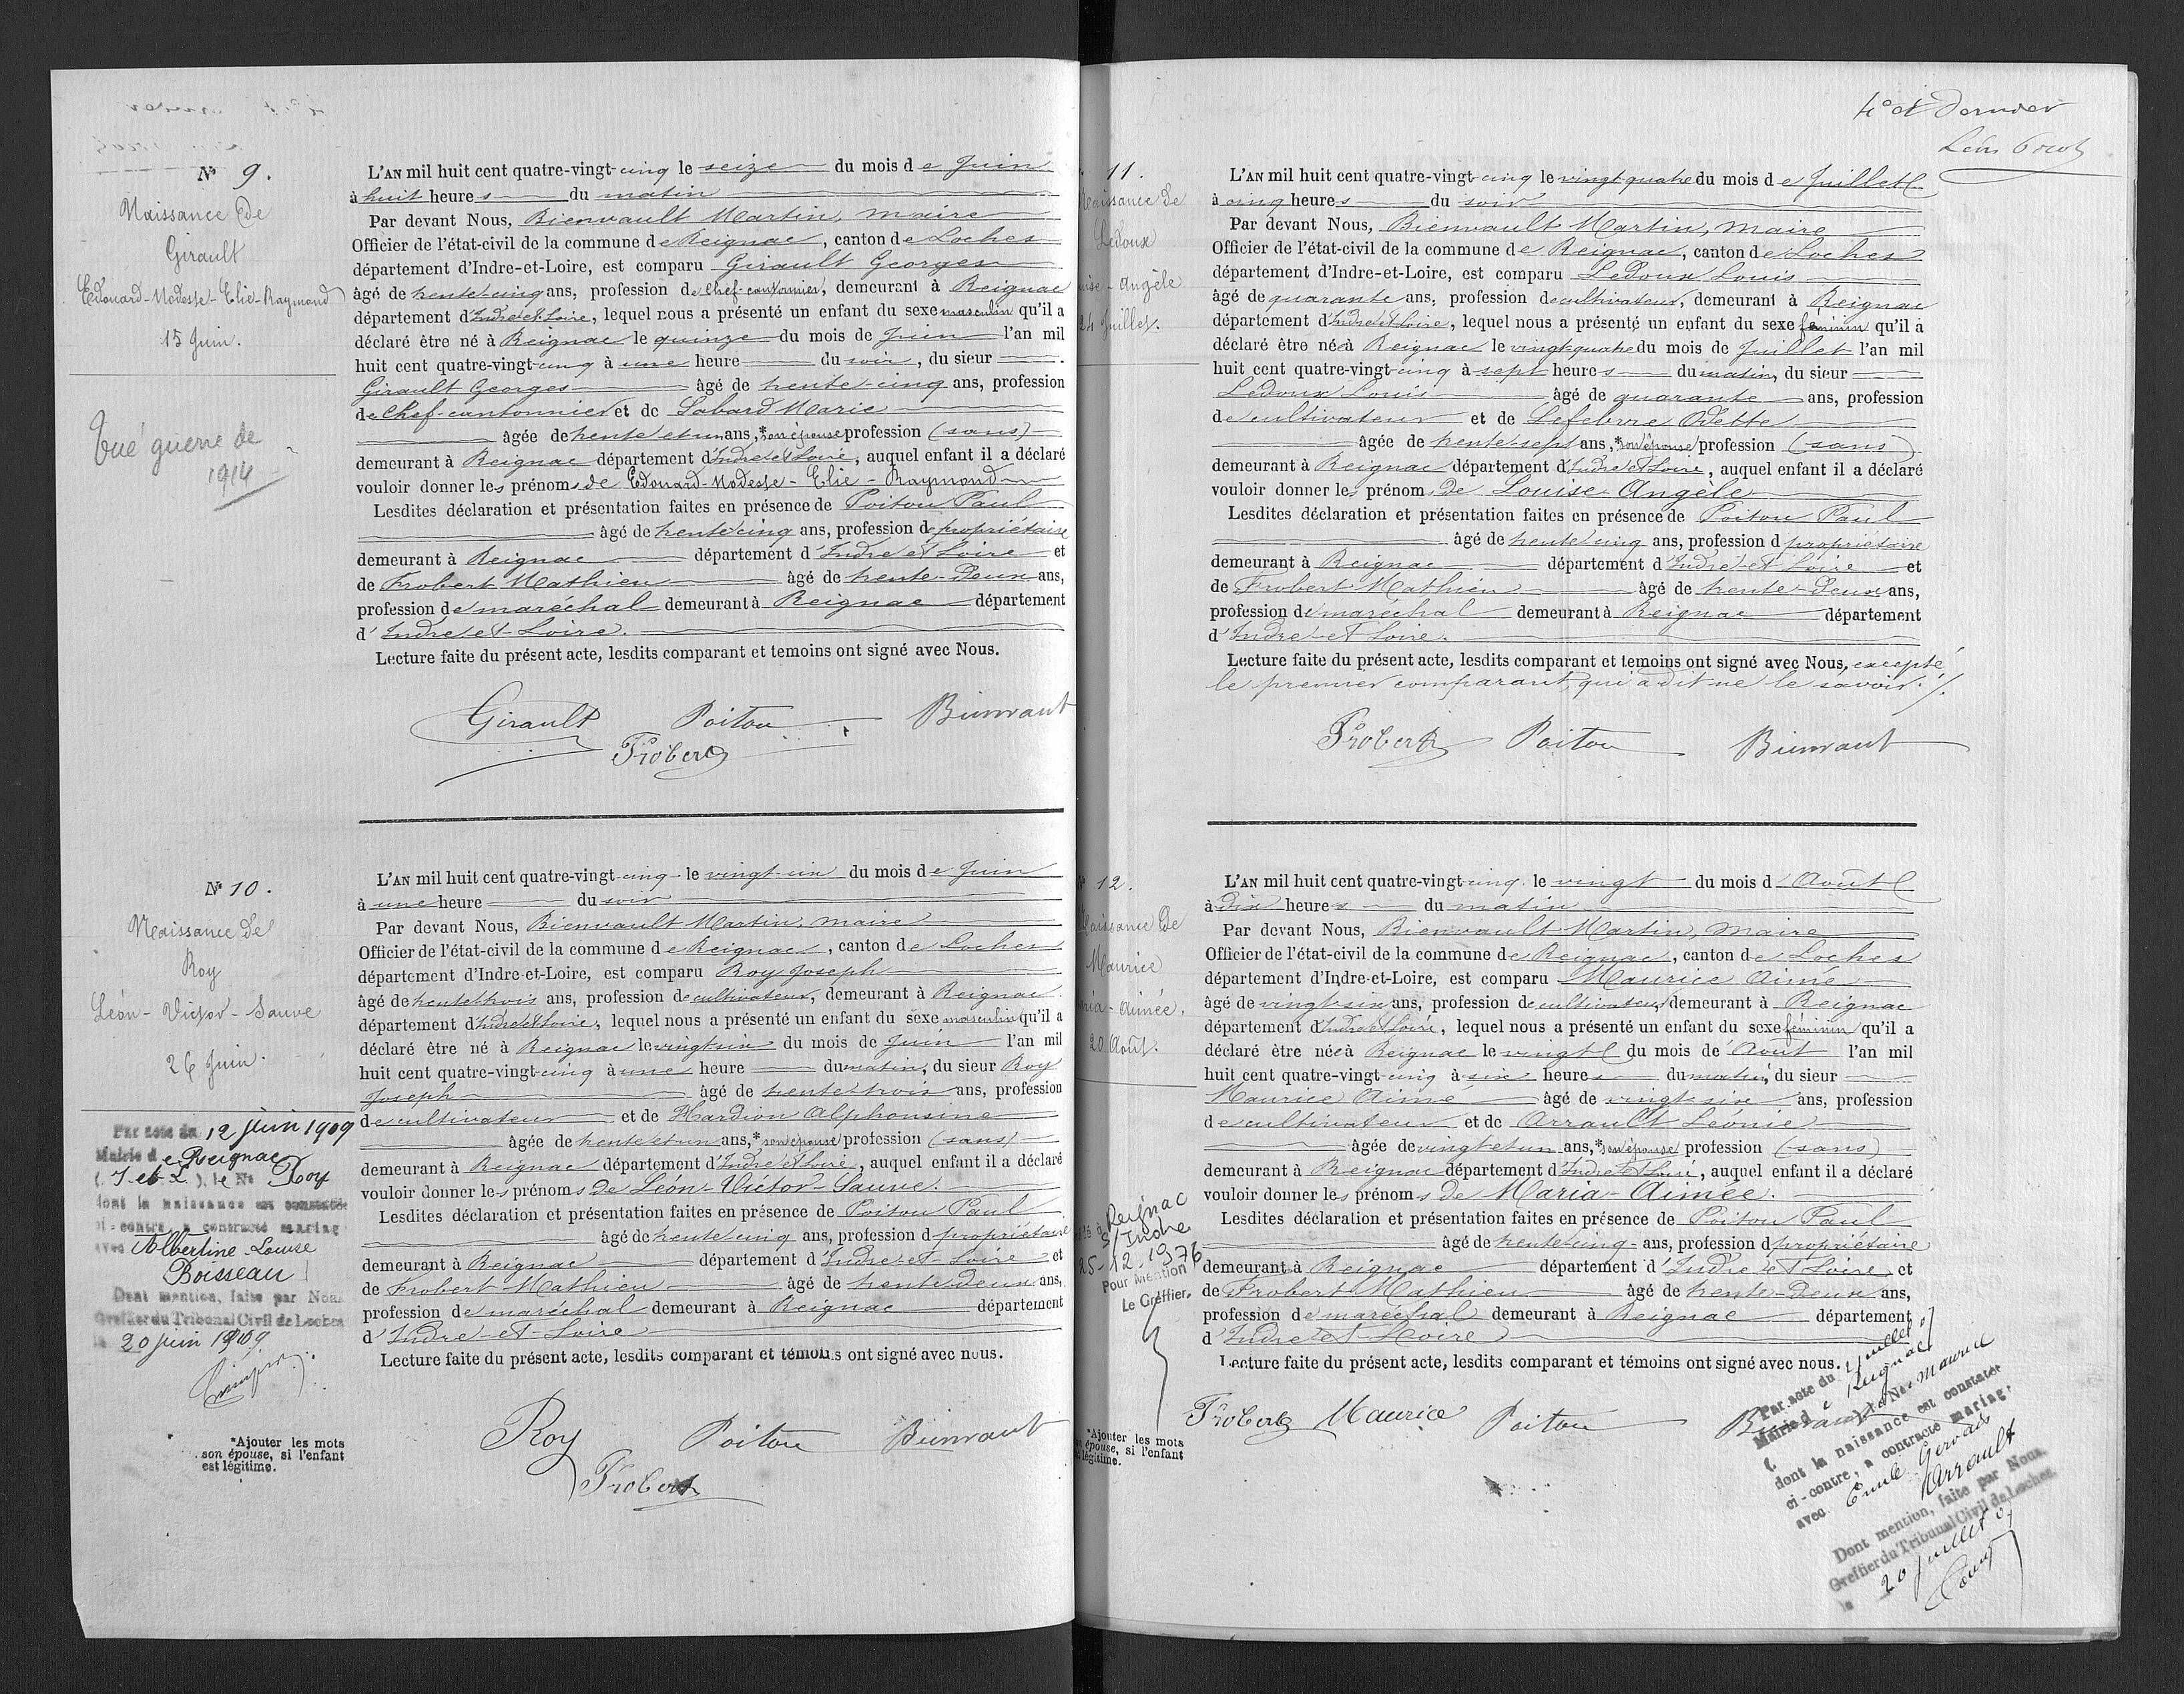 N° 9.
Naissance de
Girault
Edouard-Modeste-Elie-Raymond
15 Juin.
Tué guerre de
1914
L'AN mil huit cent quatre-vingt-cinq le seize du mois de Juin
à huit heures du matin
Par devant Nous, Bienvault Martin, maire
Officier de l'état-civil de la commune de Reignac, canton de Loches
département d'Indre-et-Loire, est comparu Girault Georges
âgé de trente-cinq ans, profession de Chef-cantonnier, demeurant à Reignac
département d'Indre et Loire, lequel nous a présenté un enfant du sexe masculin qu'il a
déclaré être né à Reignac le quinze du mois de Juin l'an mil
huit cent quatre-vingt-cinq à une heure du soir, du sieur
Girault Georges âgé de trente-cinq ans, profession
de Chef-cantonnier et de Labard Marie
âgée de trente et un ans,* son épouse profession (sans)
demeurant à Reignac département d'Indre et Loire, auquel enfant il a déclaré
vouloir donner les prénoms de Edouard-Modeste-Elie-Raymond
Lesdites déclaration et présentation faites en présence de Poitou Paul
âgé de trente cinq ans, profession de propriétaire
demeurant à Reignac département d'Indre et Loire et
de Frobert Mathieu âgé de trente-deux ans,
profession de maréchal demeurant à Reignac département
d'Indre-et-Loire.
Lecture faite du présent acte, lesdits comparant et temoins ont signé avec Nous.
Girault Poitou Bienvault
Frobert
N° 10.
Naissance de
Roy
Léon-Victor-Sauve
26 Juin.
Par acte du 12 juin 1909
Mairie de Reignac
(I-et-L), le Né Roy
dont la naissance est constatée
ci-contre, a contracté mariage
avec Albertine Louise
Boisseau
Dont mention, faite par Nous
Greffier du Tribunal Civil de Loches
le 20 juin 1909
*Ajouter les mots
son épouse, si l'enfant
est légitime.
L'AN mil huit cent quatre-vingt-cinq le vingt-six du mois de Juin
à une heure du soir
Par devant Nous, Bienvault Martin, maire
Officier de l'état-civil de la commune de Reignac, canton de Loches
département d'Indre-et-Loire, est comparu Roy Joseph
âgé de trente trois ans, profession de cultivateur, demeurant à Reignac
département d'Indre et Loire, lequel nous a présenté un enfant du sexe masculin qu'il a
déclaré être né à Reignac le vingt six du mois de Juin l'an mil
huit cent quatre-vingt-cinq à une heure du matin, du sieur Roy
Joseph âgé de trente trois ans, profession
de cultivateur et de Hardion Alphonsine
âgée de trente et un ans,* son épouse profession (sans)
demeurant à Reignac département d'Indre et Loire, auquel enfant il a déclaré
vouloir donner les prénoms de Léon-Victor-Sauve.
Lesdites déclaration et présentation faites en présence de Poitou Paul
âgé de trente cinq ans, profession de propriétaire
demeurant à Reignac département d'Indre-et-Loire et
de Frobert Mathieu âgé de trente deux ans,
profession de maréchal demeurant à Reignac département
d'Indre-et-Loire
Lecture faite du présent acte, lesdits comparant et témoins ont signé avec nous.
Roy Poitou Bienvault
Frobert
4e et dernier
11.
Naissance de
Ledoux
Louise-Angèle
24 Juillet.
L'AN mil huit cent quatre-vingt-cinq le vingt quatre du mois de Juillet
à cinq heures du soir
Par devant Nous, Bienvault Martin, maire
Officier de l'état-civil de la commune de Reignac, canton de Loches
département d'Indre-et-Loire, est comparu Ledoux Louis
âgé de quarante ans, profession de cultivateur, demeurant à Reignac
département d'Indre et Loire, lequel nous a présenté un enfant du sexe féminin qu'il a
déclaré être née à Reignac le vingt quatre du mois de Juillet l'an mil
huit cent quatre-vingt-cinq à sept heures du matin, du sieur
Ledoux Louis âgé de quarante ans, profession
de cultivateur et de Lefebvre Odette
âgée de trente-sept ans,* son épouse profession (sans)
demeurant à Reignac département d'Indre et Loire, auquel enfant il a déclaré
vouloir donner les prénoms de Louise-Angèle
Lesdites déclaration et présentation faites en présence de Poitou Paul
âgé de trente cinq ans, profession d propriétaire
demeurant à Reignac département d'Indre-et-Loire et
de Frobert Mathieu âgé de trente-deux ans,
profession de maréchal demeurant à Reignac département
d'Indre-et-Loire.
Lecture faite du présent acte, lesdits comparant et temoins ont signé avec Nous, excepté
le premier comparant, qui a dit ne le savoir./.
Frobert Poitou Bienvault
N° 12.
Naissance de
Maurice
Maria-Aimée.
20 Août.
Reignac
s/ Indre
25-12-1976
Pour Mention
Le Greffier,
*Ajouter les mots
son épouse, si l'enfant
est légitime.
L'AN mil huit cent quatre-vingt-cinq le vingt du mois d'Août
à dix heures du matin
Par devant Nous, Bienvault Martin, maire
Officier de l'état-civil de la commune de Reignac, canton de Loches
département d'Indre-et-Loire, est comparu Maurice Aimé
âgé de vingt-six ans, profession de cultivateur, demeurant à Reignac
département d'Indre et Loire, lequel nous a présenté un enfant du sexe féminin qu'il a
déclaré être née à Reignac le vingt du mois de Août l'an mil
huit cent quatre-vingt-cinq à six heures du matin, du sieur
Maurice Aimé âgé de vingt-six ans, profession
de cultivateur et de Arrault Léonie
âgée de vingt et un ans,* son épouse profession (sans)
demeurant à Reignac département d'Indre et Loire, auquel enfant il a déclaré
vouloir donner les prénoms de Maria-Aimée.
Lesdites déclaration et présentation faites en présence de Poitou Paul
âgé de trente-cinq ans, profession d propriétaire
demeurant à Reignac département d'Indre et Loire, et
de Frobert Mathieu âgé de trente-deux ans,
profession de maréchal demeurant à Reignac département
d'Indre et Loire
Lecture faite du présent acte, lesdits comparant et témoins ont signé avec nous.
Frobert Maurice Poitou Bienvault
Par acte du juillet 07
Mairie d Reignac
Née Maurice
dont la naissance est constatée
ci-contre, a contracté mariage
avec Emile Gervais
Arrault
Dont mention, faite par Nous
Greffier du Tribunal Civil de Loches.
le 20 juillet 07